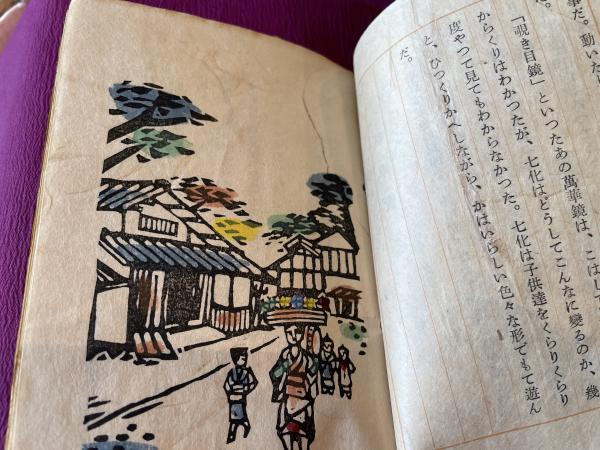 事だ。動いた
だ。
「覗き目鏡」といつたあの萬華鏡は、こはして
からくりはわかつたが、七化はどうしてこんなに變るのか、幾
度やつて見てもわからなかつた。七化は子供達をくらりくらり
と、ひつくりかへしながら、かはいらしい色々な形でもて遊ん
だ。